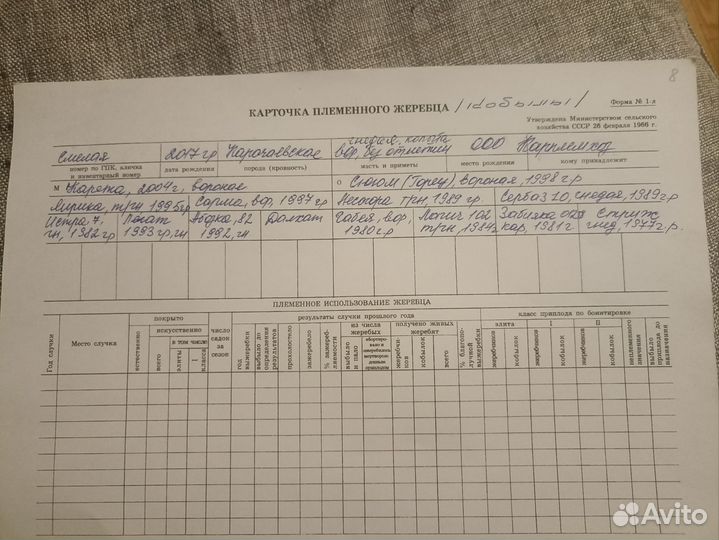 8
КАРТОЧКА ПЛЕМЕННОГО ЖЕРЕБЦА /кобылы/
Форма № 1-л
Утверждена Министерством сельского
хозяйства СССР 26 февраля 1966 г.
гнедая, копыта
Смелая 2017 гр Карачаевская вор, без отметин ООО Карплемхоз
номер по ГПК, кличка и инвентарный номер
дата рождения
порода (кровность)
масть и приметы
место рождения
кому принадлежит
М Карета, 2004 г, вороная
О Сном (Торец), вороная, 1998 г.р
Лирика, т/гн 1995гр
Сарма, вор, 1997 гр
Несогра т/гн, 1989 гр.
Сербаз 70, гнедая, 1989 гр
Истра 7, гн, 1982 гр
Логат 1993 гр, гн
Аборка, 82 1992, гн
Долхат
Габея, вор, 1980 г.р
Лотич 102 т/гн, 1984г
Забияка кар, 1981г
Стриж гнед, 1977 г.р.
ПЛЕМЕННОЕ ИСПОЛЬЗОВАНИЕ ЖЕРЕБЦА
Год случки
Место случки
покрыто
естественно
искусственно
всего
в том числе
элиты
I класса
число садок за сезон
результаты случки прошлого года
год выжеребки
выбыло до определения результатов
прохолостело
зажеребело
% зажеребляемости
из числа жеребых
выбыло и пало
абортировало и ожеребилось мертворожденным приплодом
получено живых жеребят
жеребчиков
кобылок
всего
% благополучной выжеребки
класс приплода по бонитировке
элита
жеребчиков
кобылок
I
жеребчиков
кобылок
II
жеребчиков
кобылок
неплеменного значения
выбыло приплода до назначения
Avito